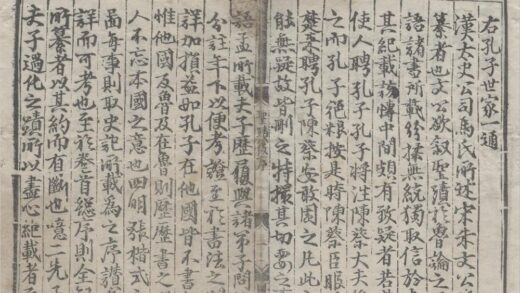 右孔子世家一通
漢太史公司馬氏所述宋朱文公
纂者也文公欲叙聖蹟於魯論之
語諸書所載紛揉無統獨取信於
其紀載該博中間頗有致疑者若
使人聘孔子孔子將往陳蔡大夫
之而孔子絕粮按是時陳蔡臣服
楚来聘孔子陳蔡安敢圍之凡此
能無疑故皆删之特撮其切要之
語孟所載夫子歷履與諸弟子問
分註年下以便考證至於書法之
詳加損益如孔子在他國皆不書
惟他國及魯及在魯則歷歷書之
人不忘本國之意也四明張楷式
圖每事則取史記所載為之序讃
詳而可考也至於卷首緫序則全
所纂者以其約而有斷也噫二先
夫子過化之蹟所以盡心紀載者